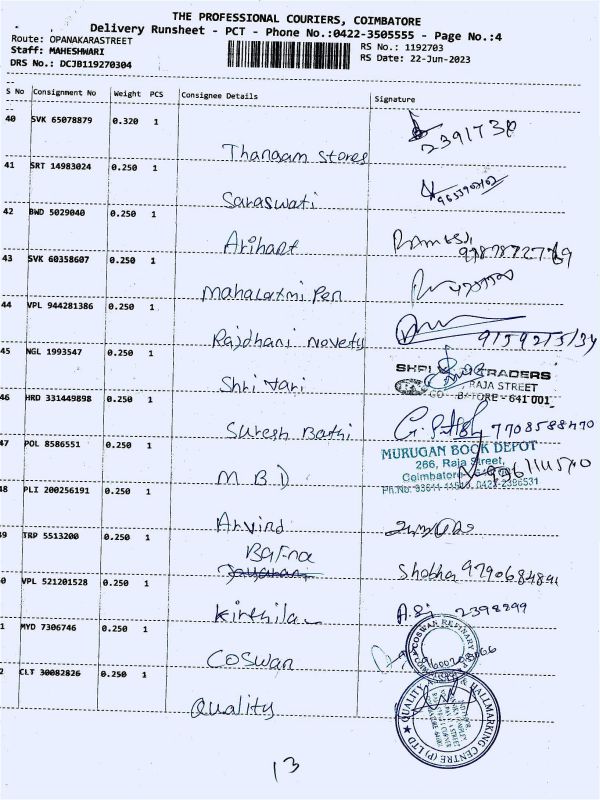 THE PROFESSIONAL COURIERS, COIMBATORE
Delivery Runsheet - PCT - Phone No.:0422-3505555 - Page No.:4
Route: OPANAKARASTREET
Staff: MAHESHWARI RS No.: 1192703
DRS No.: DCJB119270304 RS Date: 22-Jun-2023
S No Consignment No Weight PCS Consignee Details Signature
40 SVK 65078879 0.320 1
Thangam Stores
41 SRT 14983024 0.250 1
Saraswati
42 BWD 5029040 0.250 1
Arihant
43 SVK 60358607 0.250 1
Mahalaxmi Pen
44 VPL 944281386 0.250 1
Rajdhani Novety
45 NGL 1993547 0.250 1
Shri Hari
TRADERS
RAJA STREET
641 001
46 HRD 331449898 0.250 1
Suresh Bathi 7708588470
47 POL 8586551 0.250 1
MURUGAN BOOK DEPOT
266, Raja Street,
Coimbatore
M B D
48 PLI 200256191 0.250 1
Arvind
49 TRP 5513200 0.250 1
Bafna
Shobha
0 VPL 521201528 0.250 1
2398299
1 MYD 7306746 0.250 1
COSWAN REFINARY
Coswan
2 CLT 30082826 0.250 1
QUALITY HALLMARKING CENTRE (P) LTD
Quality
13